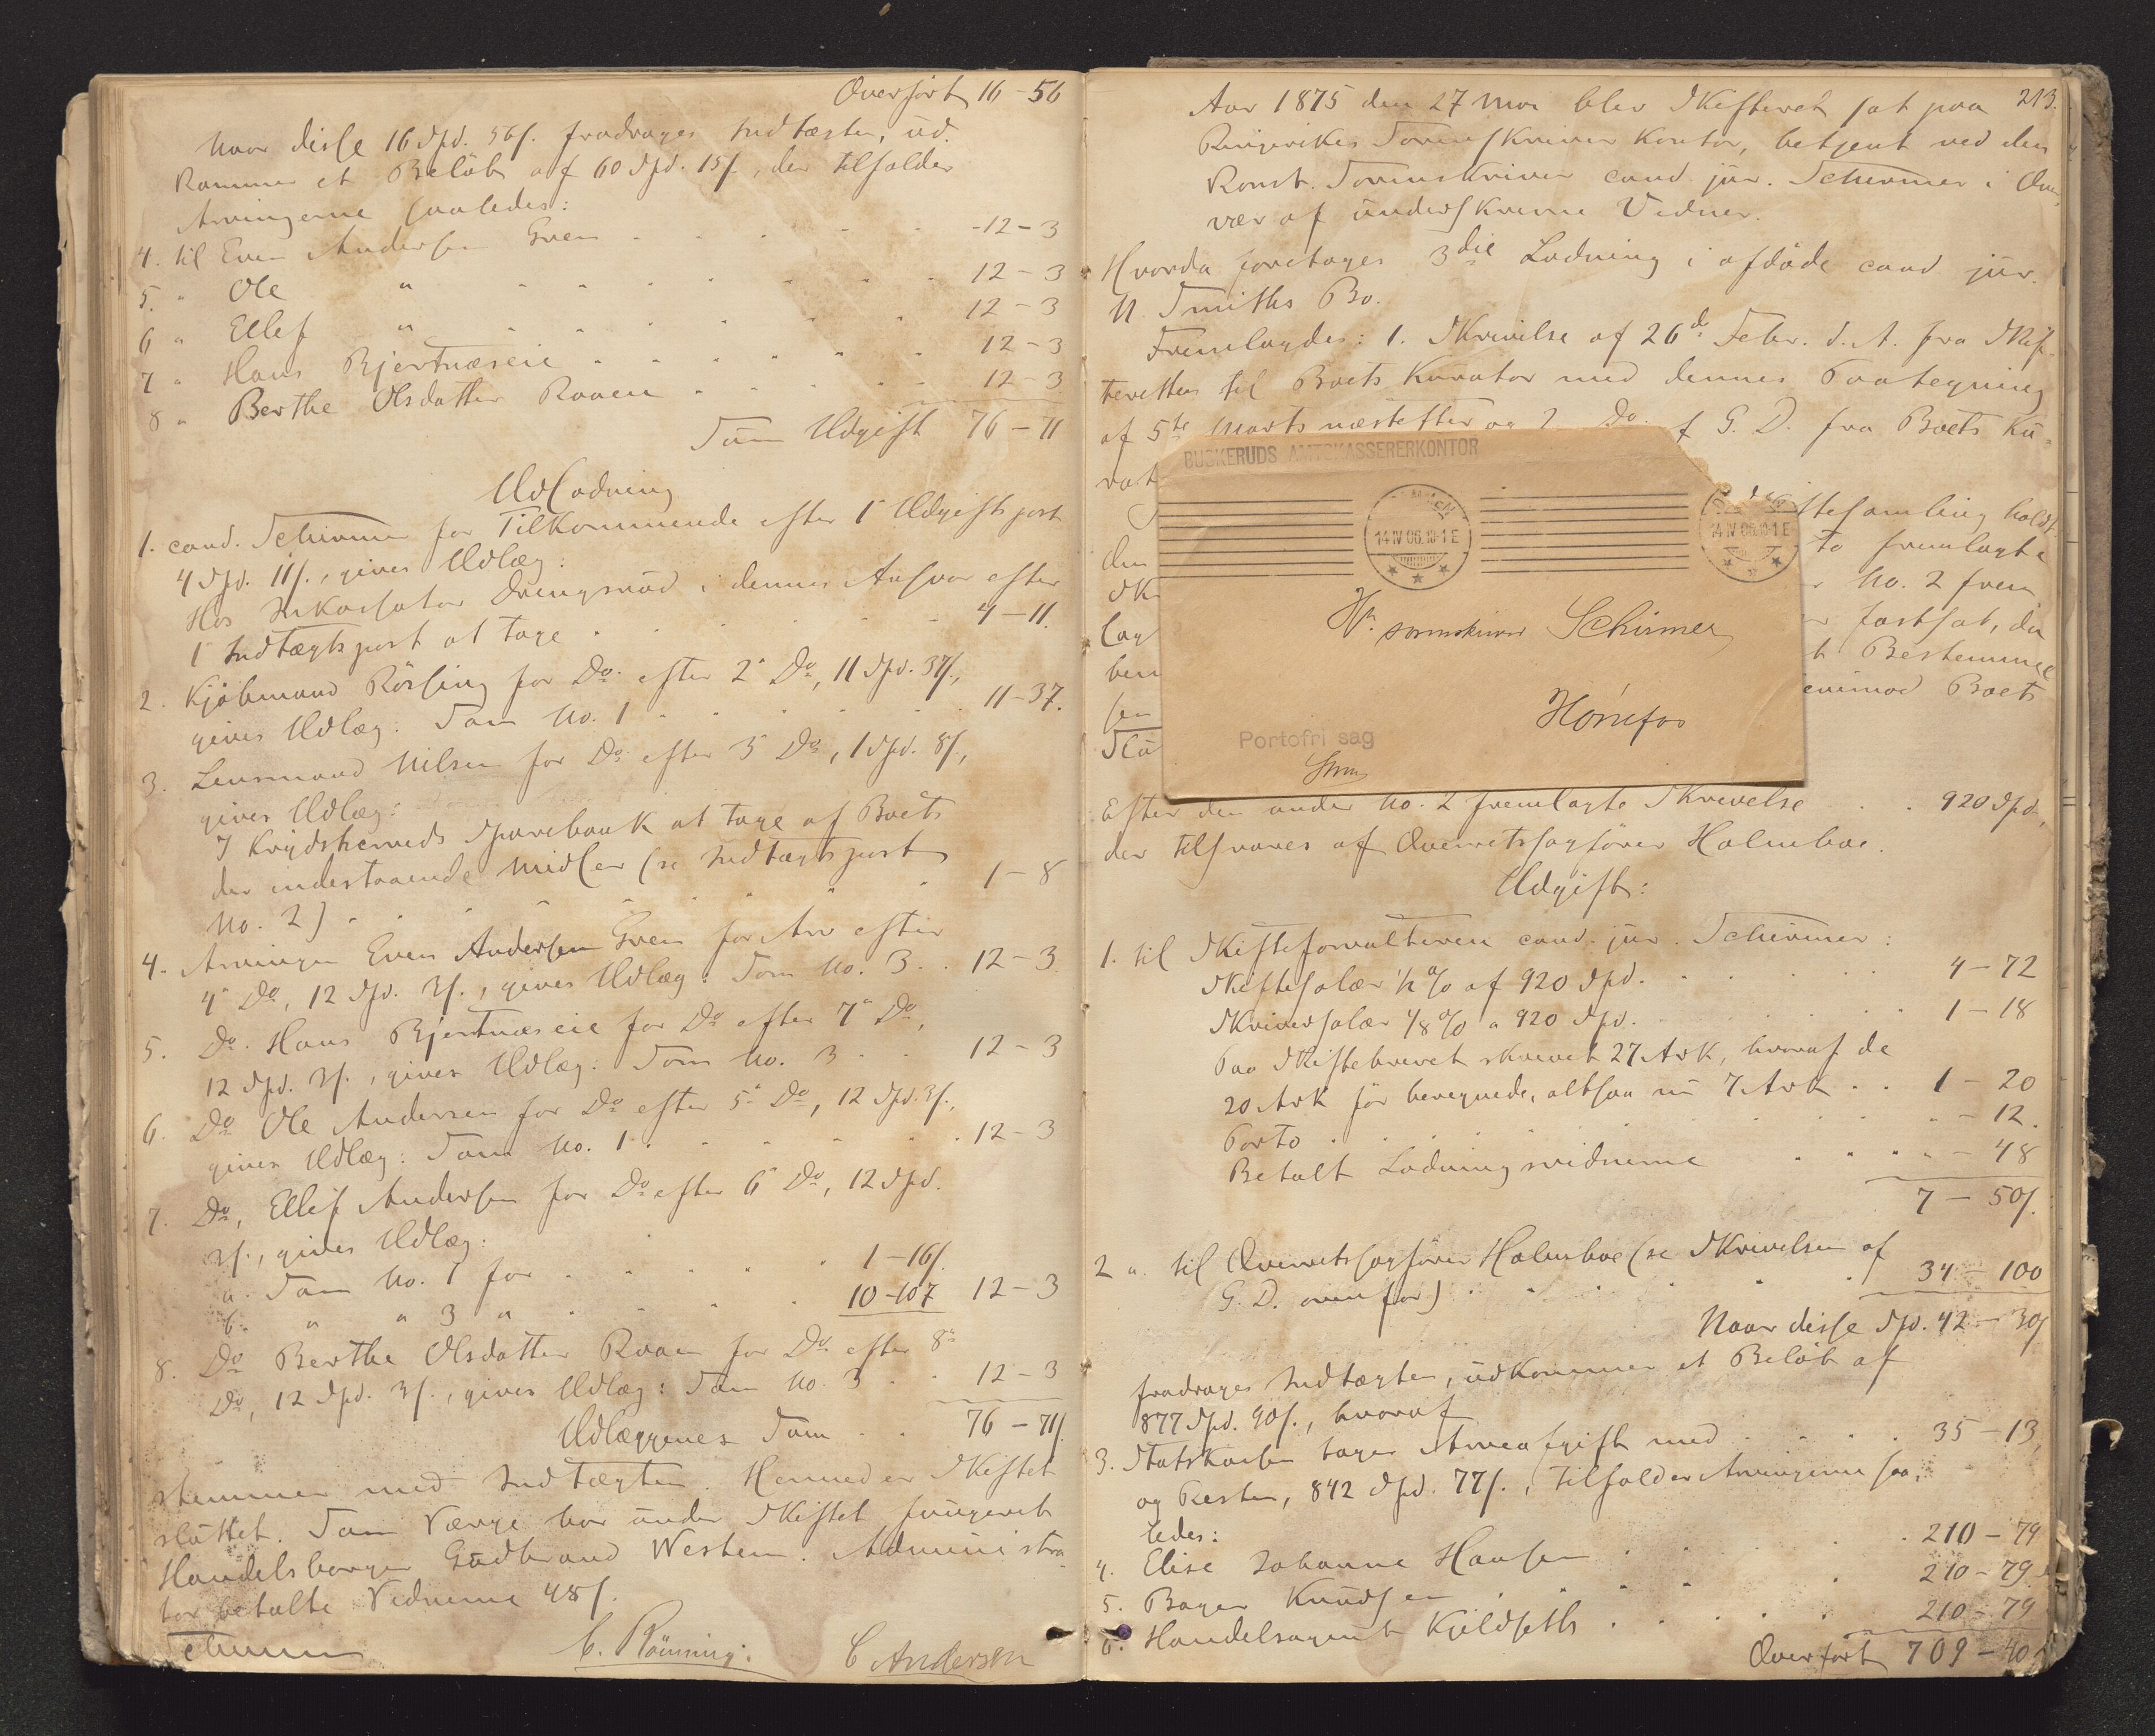 Overført 16 - 56
Naar disse 16 Spd. 56 s. fradrages Indtægten, ud-
kommer et Beløb af 60 Spd. 15 s., der tilfalder
Arvingerne saaledes:
4. til Even Andersen Gren - 12 - 3
5. " Ole " 12 - 3
6 " Ellef " 12 - 3
7 " Hans Bjertnæseie 12 - 3
8 " Berthe Olsdatter Raaen 12 - 3
Sum Udgift 76 - 71
Udlodning
1. cand. Schirmer for Tilkommende efter 1ste Udgiftspost
4 Spd. 11 s., gives Udlæg:
Hos Inkassator Drengsrud i dennes Ansvar efter
1ste Indtægtspost at tage 4 - 11.
2. Kjøbmand Rørsing for Do. efter 2den Do, 11 Spd. 37 s.,
gives Udlæg: Som No. 1 11 - 37.
3. Lensmand Nilsen for Do. efter 3die Do, 1 Spd. 8 s.,
gives Udlæg:
I Krydsherreds Sparebank at tage af Boets
der indestaaende Midler (se Indtægtspost
No. 2) 1 - 8
4. Arvingen Even Andersen Gren for Arv efter
4de Do, 12 Spd. 3 s., gives Udlæg: Som No. 3. 12 - 3
5. Do. Hans Bjertnæseie for Do efter 7de Do,
12 Spd. 3 s., gives Udlæg: Som No. 3 12 - 3
6. Do Ole Andersen for Do efter 5te Do, 12 Spd. 3 s.,
gives Udlæg: Som No. 1 12 - 3
7. Do, Ellef Andersen for Do efter 6te Do, 12 Spd.
3 s., gives Udlæg:
a. Som No. 1 for 1 - 16 s.
b. " " 3 " 10 - 107 12 - 3
8. Do Berthe Olsdatter Raaen for Do efter 8de
Do, 12 Spd. 3 s., gives Udlæg: Som No. 3 12 - 3
Udlæggenes Sum 76 - 71 s.
stemmer med Indtægten. Hermed er Skiftet
sluttet. Som Værge har under Skiftet fungeret
Handelsborger Gudbrand Western. Administra-
tor betalte Vidnerne 48 s.
Schirmer C. Rønning. C Andersen
213.
Aar 1875 den 27 Mai blev Skifteret sat paa
Ringerikes Sorenskriver Kontor, betjent ved den
Konst. Sorenskriver cand. jur. Schirmer i Over-
vær af underskrevne Vidner.
Hvorda foretages 3die Lodning i afdøde cand jur.
N. Smiths Bo.
Fremlagdes: 1. Skrivelse af 26de Febr. d. A. fra Skif-
teretten til Boets Kurator med dennes Paategning
af 5te Marts næstefter og 2. Do. af G. D. fra Boets Ku-
rat
den
Sk
lag
ben
sen
Slu
ftesamling holdt
to fremlagte
No. 2 frem
fastsat, da
t Bestemmel
enimod Boets
BUSKERUDS AMTSKASSERERKONTOR
14 IV 06.10-1 E
14 IV 06.10-1 E
Hr. sorenskriver Schirmer
Hønefos
Portofri sag
Efter den under No. 2 fremlagte Skrivelse 920 Spd.,
der tilsvares af Overretssagfører Holmboe.
Udgift:
1. til Skifteforvalteren cand. jur. Schirmer:
Skiftesalær 1/2 % af 920 Spd. 4 - 72
Skriversalær 1/8 % a 920 Spd. 1 - 18
Paa Skiftebrevet skrevet 27 Ark, hvoraf de
20 Ark før beregnede, altsaa nu 7 Ark 1 - 20
Porto - 12.
Betalt Lodningsvidnerne - 48
7 - 50 s.
2 " til Overretssagfører Holmboe (se Skrivelsen af
G. D. ovenfor) 34 - 100
Naar disse Spd. 42 - 30 s
fradrages Indtægten, udkommer et Beløb af
877 Spd. 90 s., hvoraf
3. Statskassen tager Arveafgift med 35 - 13,
og Resten, 842 Spd. 77 s., tilfalder Arvingerne saa-
ledes:
4. Elise Johanne Hansen 210 - 79
5. Bager Knudsen 210 - 79
6. Handelsagent Kjeldseth 210 - 79
Overført 709 - 40 s